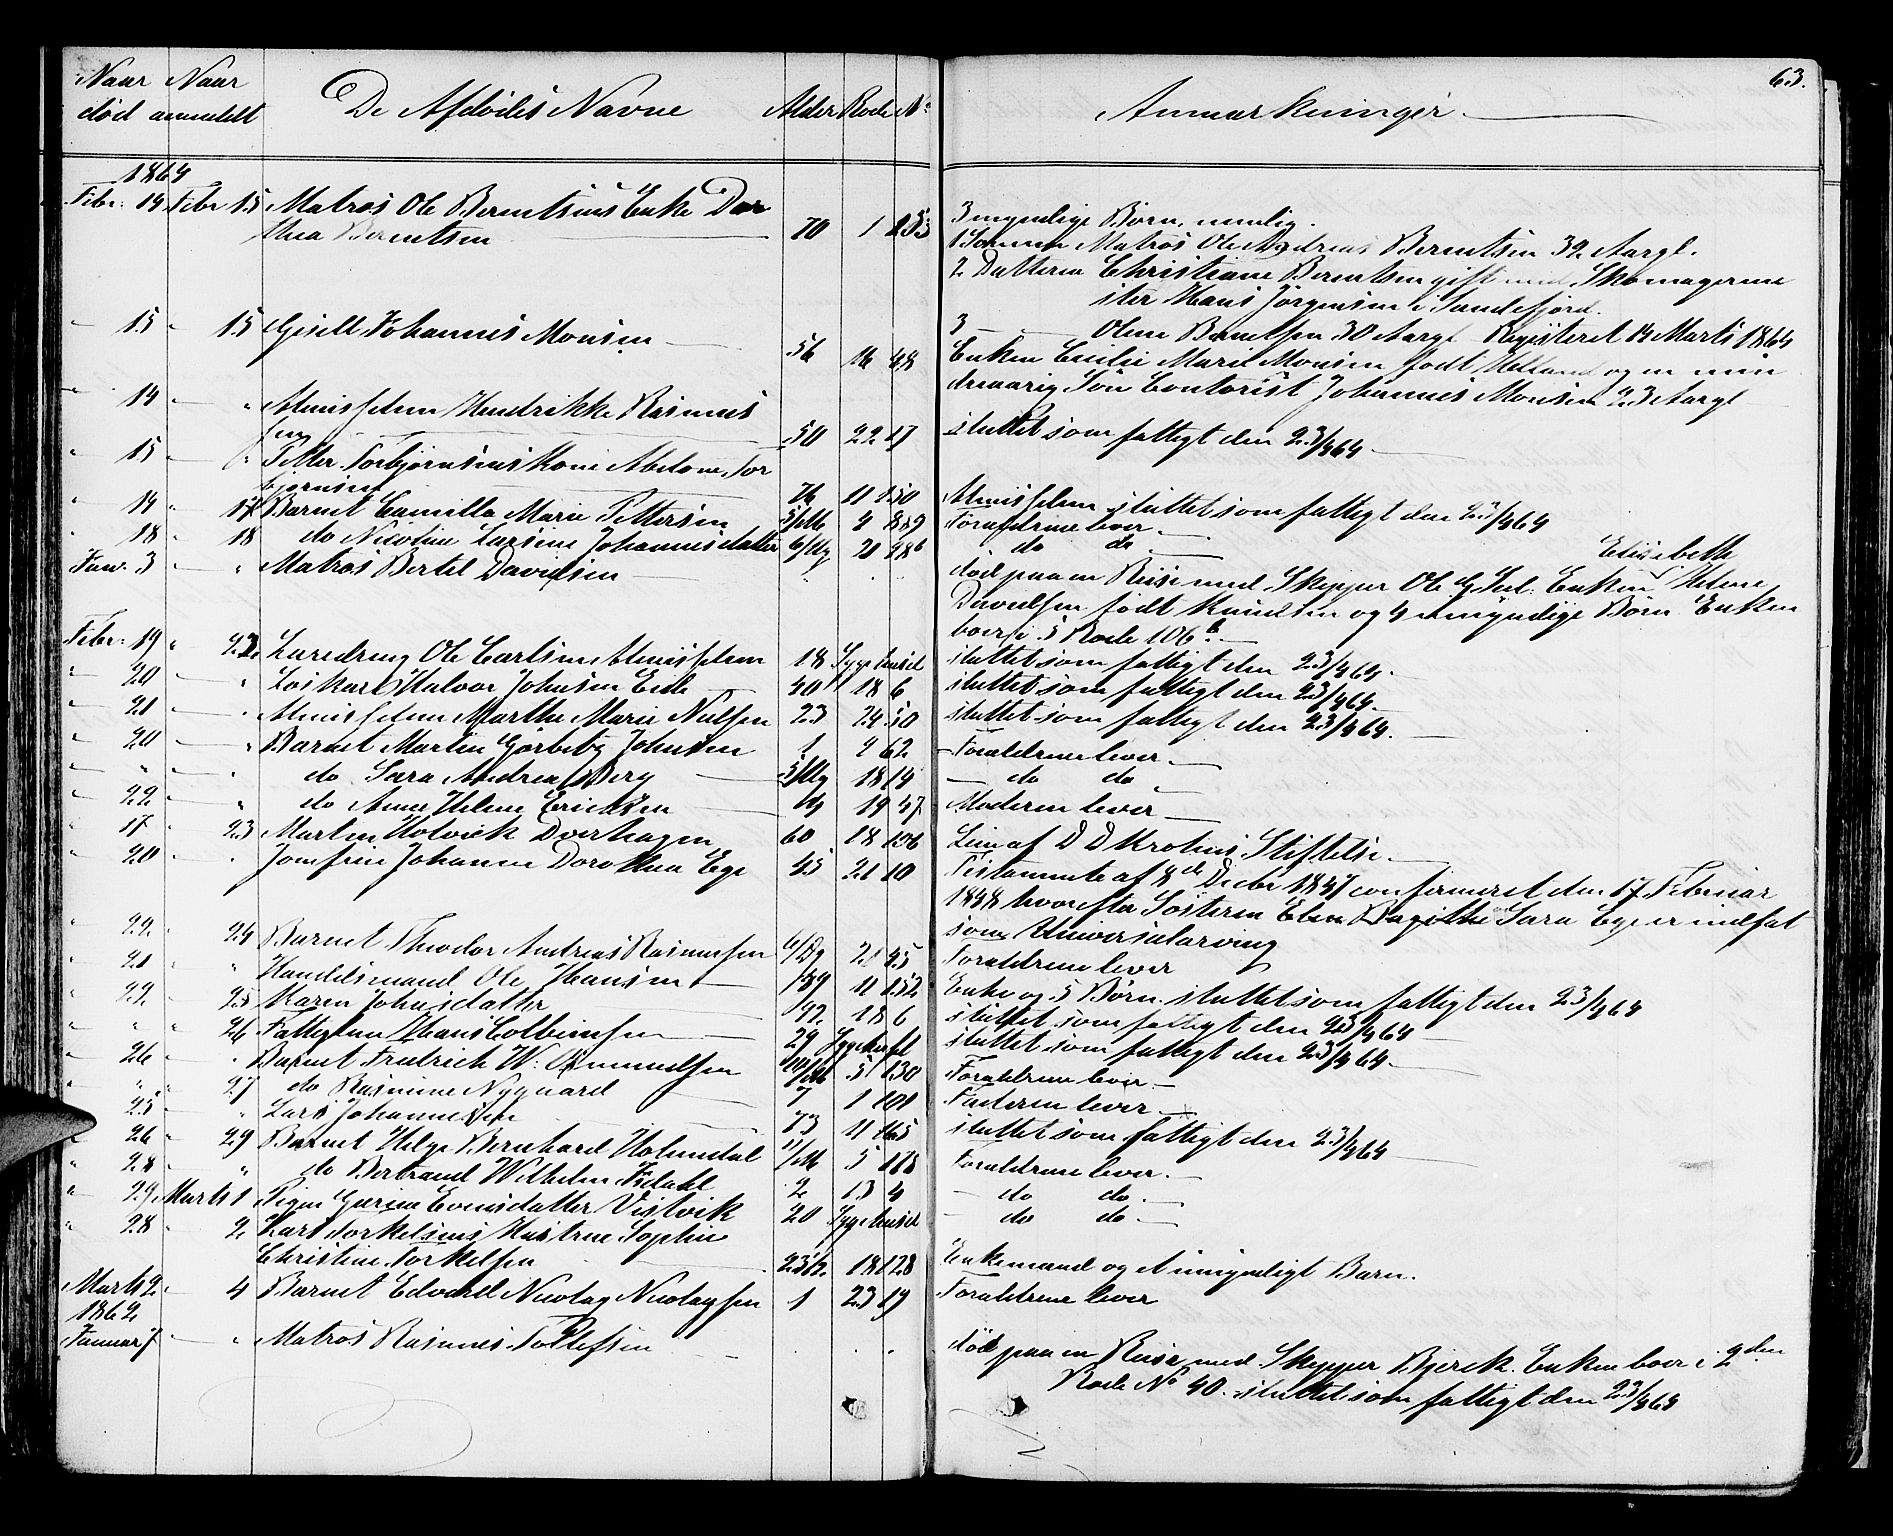 63.
Naar død Naar anmeldt De Afdødes Navne Alder Rode No Anmærkninger
1864
Febr: 14 Febr 15 Matros Ole Berentsens Enke Dor
thea Berentsen 70 1 253
3 myndige Børn, nemlig.
1 Sønnen Matros Ole Andreas Berentsen 32 Aargl.
2 Datteren Christiane Berentsen gift med Skomagerme
ster Hans Jørgensen i Sandefjord.
3 Olene Berentsen 30 Aargl Registeret 14 Marts 1864
" 15 " 15 Gisell Johannes Monsen 56 16 48
Enken Cecilie Marie Monsen født og en min
dreaarig Søn Contorist Johannes Monsen 23 Aargl
" 14 " " Almisselem Hendrikke Rasmus
sen 50 22 17 sluttet som fattigt den 23/4 64
" 15 " " Petter Torbjørnsens Kone Abelone Tor
bjørnsen 76 11 150 Almisselem sluttet som fattigt den 23/4 64
" 14 " 17 Barnet Camilla Marie Pettersen 5/Mr 4 889 Forældrene lever
" 18 18 do Nicoline Larsine Johannesdatter 6/Ug 20 28b do do
Jan. 3 " " Matros Bertel Davidsen
død paa en Reise med Skipper Ole G. Enken Elisebeth Helene
Davidsen født Knudsen og 4 umyndige Børn Enken
boer i 5 Rode 106b
Febr: 19 " 22 Læredreng Ole Carlsen Almisselem 18 Sygehuset sluttet som fattigt den 23/4 64.
" 20 " Løskarl Halvor Johnsen Eide 40 18 6 sluttet som fattigt den 23/4 64.
" 21 " Almisselem Marthe Marie Nielsen 23 24 50 sluttet som fattigt den 23/4 64.
" 20 " Barnet Martin Gørbitz Johnsen 1 4 62 Forældrene lever
" " " do Sara Andrea Berg 3/Ug 18 14 do do
" 22 " do Anne Helene Ericksen 19 47 Moderen lever
" 17 " 23 Marten Holvick Dverhagen 60 18 136 Lem af D D Krohns Stiftelse
" 20 " Jomfrue Johanne Dorothea Ege 45 21 10 Testamente af 8de Decbr 1847 confirmeret den 17 Februar
1848 hvorefter Søsteren Elen Birgithe Sara Ege er indsat
som Universalarving
" 22 24 Barnet Theodor Andreas Rasmussen 4/Dg 21 95 Forældrene lever
" 21 " Handelsmand Ole Hansen 11 152 Enke og 5 Børn. sluttet som fattigt den 23/4 64
" 22 " 25 Karen Johnsdatter 92 18 6 sluttet som fattigt den 23/4 64
" " " 26 Fattiglem Hans Colbeinsen 29 Sygehuset sluttet som fattigt den 23/4 64
" 26 " Barnet Fredrich W. Gmmundsen 5 130 Forældrene lever
" " 27 do Rasmine Nygaard 7 1 101 Faderen lever
" 25 " Lars Johannessen 73 11 165 sluttet som fattigt den 23/4 64
" 26 " 29 Barnet Helge Bernhard Holmedal 11/M 5 178 Forældrene lever
" 28 " do Bertrand Wilhelm Fsdahl 2 13 4 do do
" 29 Marts 1 Pigen Gurine Evensdatter Vistvik 20 Sygehuset do do
" 28 " 2 Karl Torkelsens Hustrue Sophie
Christine Torkelsen 23½ 18 128 Enkemand og et umyndigt Barn.
Marts 2 " 4 Barnet Edvard Nicolay Nicolaysen 1 23 19 Forældrene lever
1862
Januar 7 " Matros Rasmus Tollefsen
død paa en Reise med Skipper Bjerck. Enken boer i 2den
Rode No 40. sluttet som fattigt den 23/4 64